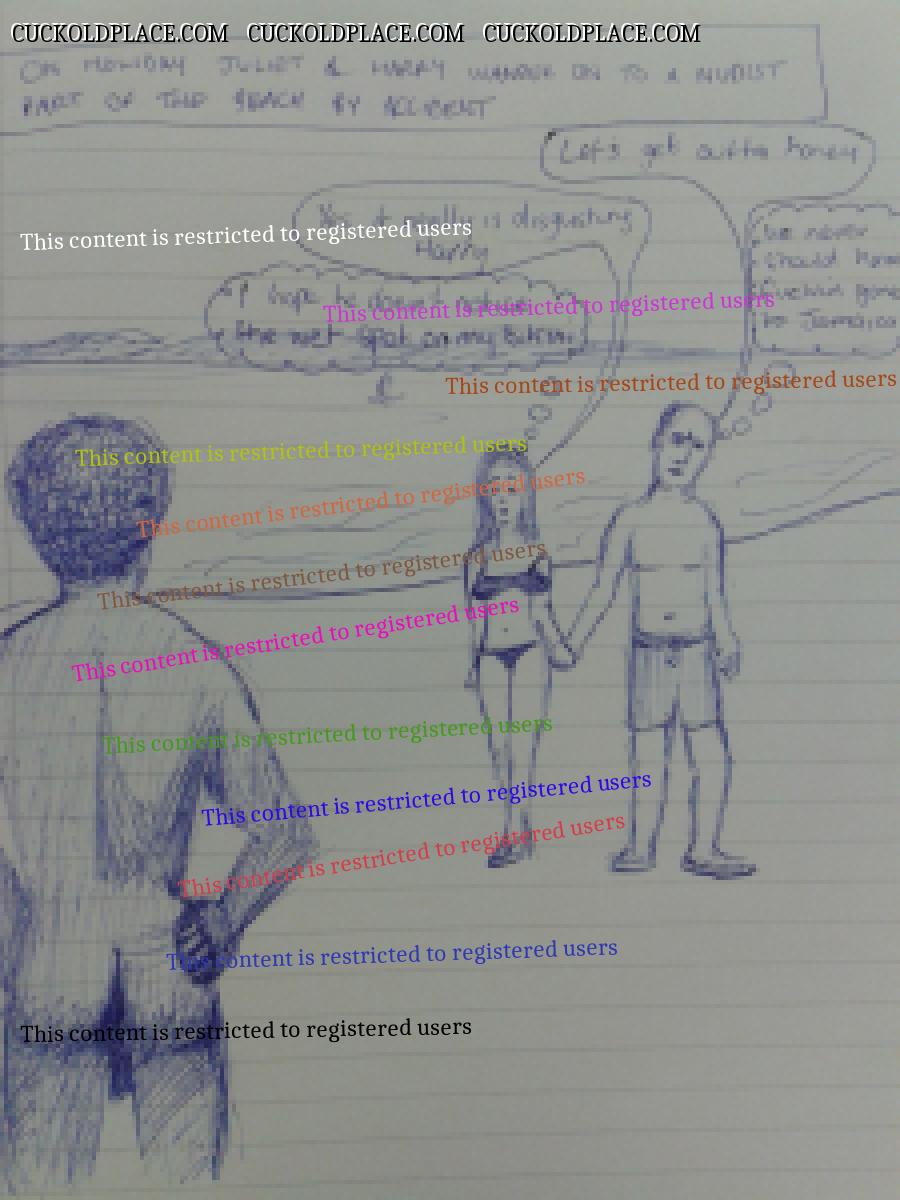 CUCKOLDPLACE.COM CUCKOLDPLACE.COM CUCKOLDPLACE.COM
ON HOLIDAY JULIET & HARRY WANDER ON TO A NUDIST
PART OF THE BEACH BY ACCIDENT
Let's get outta honey
Yes it really is disgusting
Harry
This content is restricted to registered users
We never
Should have
Fuckin gone
to Jamaica
I hope he doesn't notice
the wet spot on my bikini
This content is restricted to registered users
This content is restricted to registered users
This content is restricted to registered users
This content is restricted to registered users
This content is restricted to registered users
This content is restricted to registered users
This content is restricted to registered users
This content is restricted to registered users
This content is restricted to registered users
This content is restricted to registered users
This content is restricted to registered users